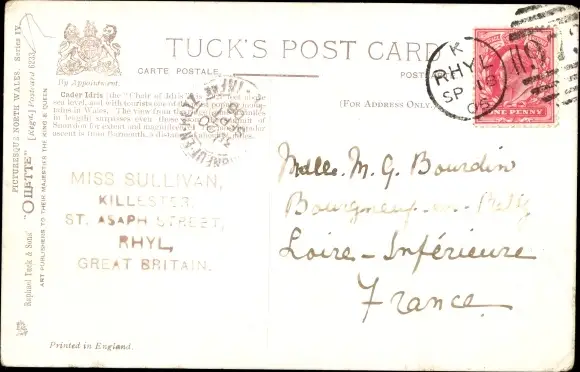 TUCK'S POST CARD
CARTE POSTALE
POST
(FOR ADDRESS ONLY.)
By Appointment.
Cader Idris (the "Chair of Idris")
sea level, and with tourists
in Wales. The view from
in length) surpasses even
Snowdon for extent and
ascent is from Barmouth, a
PICTURESQUE NORTH WALES. Series IV.
"OILETTE" [Regd.] Postcard
Raphael Tuck & Sons'
ART PUBLISHERS TO THEIR MAJESTIES THE KING & QUEEN
Printed in England.
RHYL
SP 16
ONE PENNY
MISS SULLIVAN,
KILLESTER,
ST. ASAPH STREET,
RHYL,
GREAT BRITAIN.
Melle. M. G. Bourdin
Bourgneuf-en-Retz
Loire-Inférieure
France